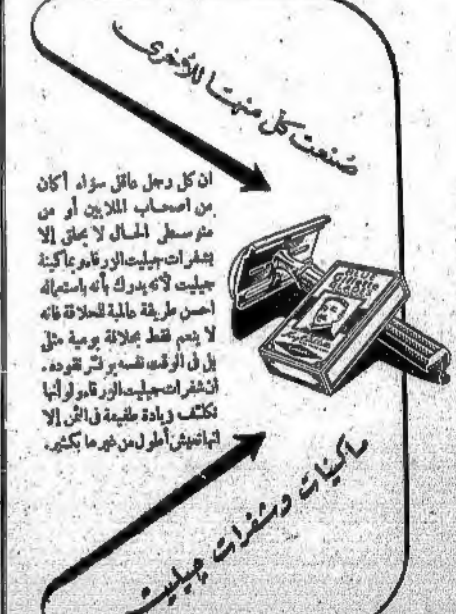 صنعت كل منها للأخرى
ان كل رجل عاقل سواء أكان
من اصحاب الملايين أو من
متوسطى الحال لا يحلق إلا
بشفرات جيليت الزرقاء وماكينة
جيليت لأنه يدرك بأنه باستعماله
احسن طريقة عالمية للحلاقة فانه
لا ينعم فقط بحلاقة يومية مثلى
بل فى الوقت نفسه يوفر نقوده.
ان شفرات جيليت الزرقاء ولو أنها
تكلف زيادة طفيفة فى الثمن إلا
انها تعيش أطول من غيرها بكثير.
BLUE
Gillette
ماكينات وشفرات جيليت